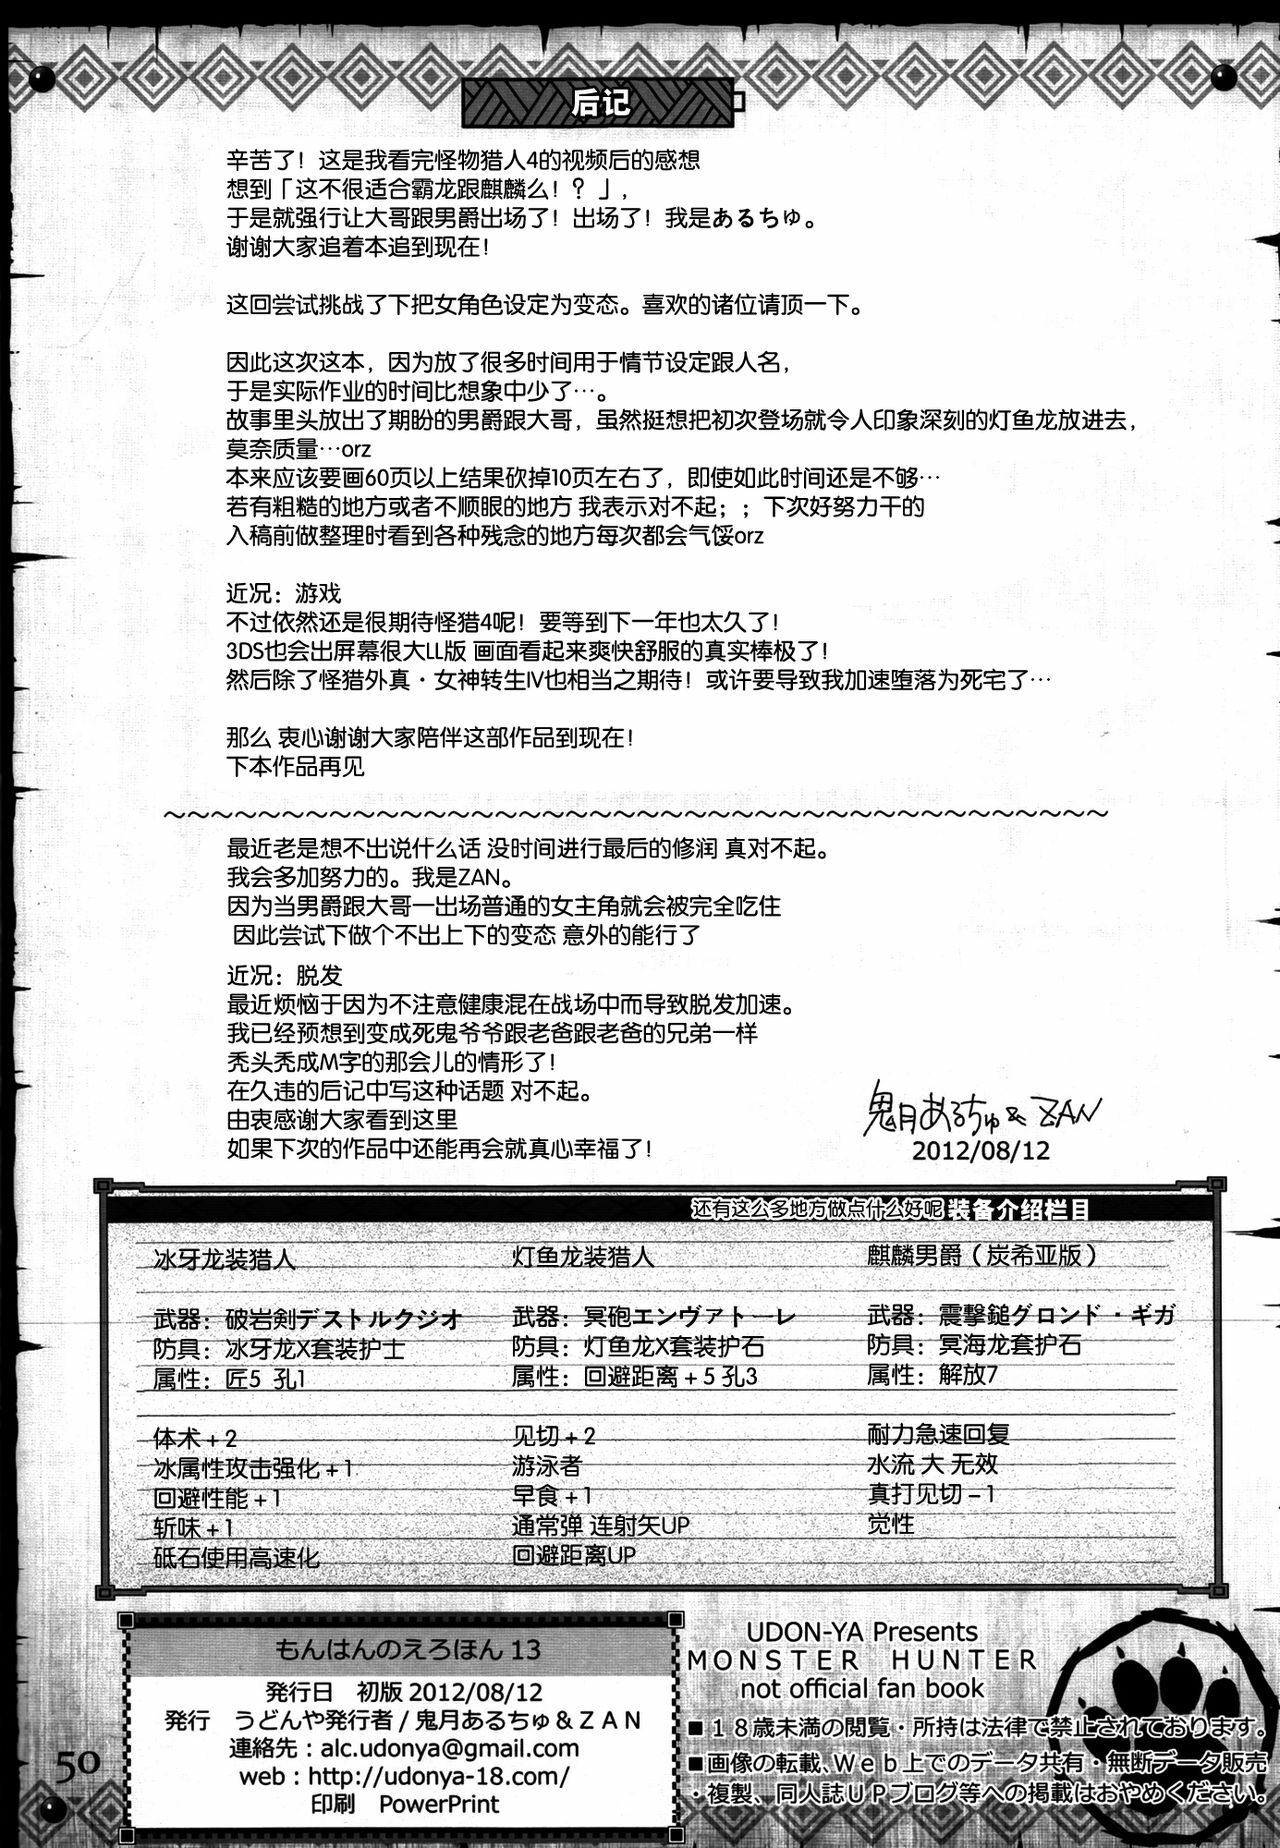 后记
辛苦了！这是我看完怪物猎人4的视频后的感想
想到「这不很适合霸龙跟麒麟么！？」，
于是就强行让大哥跟男爵出场了！出场了！我是あるちゅ。
谢谢大家追着本追到现在！
这回尝试挑战了下把女角色设定为变态。喜欢的诸位请顶一下。
因此这次这本，因为放了很多时间用于情节设定跟人名，
于是实际作业的时间比想象中少了…。
故事里头放出了期盼的男爵跟大哥，虽然挺想把初次登场就令人印象深刻的灯鱼龙放进去，
莫奈质量…orz
本来应该要画60页以上结果砍掉10页左右了，即使如此时间还是不够…
若有粗糙的地方或者不顺眼的地方 我表示对不起；；下次好努力干的
入稿前做整理时看到各种残念的地方每次都会气馁orz
近况：游戏
不过依然还是很期待怪猎4呢！要等到下一年也太久了！
3DS也会出屏幕很大LL版 画面看起来爽快舒服的真实棒极了！
然后除了怪猎外真・女神转生IV也相当之期待！或许要导致我加速堕落为死宅了…
那么 衷心谢谢大家陪伴这部作品到现在！
下本作品再见
～～～～～～～～～～～～～～～～～～～～～～～～～～～～～～～～～～～～～～～～
最近老是想不出说什么话 没时间进行最后的修润 真对不起。
我会多加努力的。我是ZAN。
因为当男爵跟大哥一出场普通的女主角就会被完全吃住
因此尝试下做个不出上下的变态 意外的能行了
近况：脱发
最近烦恼于因为不注意健康混在战场中而导致脱发加速。
我已经预想到变成死鬼爷爷跟老爸跟老爸的兄弟一样
秃头秃成M字的那会儿的情形了！
在久违的后记中写这种话题 对不起。
由衷感谢大家看到这里
如果下次的作品中还能再会就真心幸福了！
鬼月あるちゅ&ZAN
2012/08/12
还有这么多地方做点什么好呢 装备介绍栏目
冰牙龙装猎人
武器：破岩剣デストルクジオ
防具：冰牙龙X套装护士
属性：匠5 孔1
体术＋2
冰属性攻击强化＋1
回避性能＋1
斩味＋1
砥石使用高速化
灯鱼龙装猎人
武器：冥砲エンヴァトーレ
防具：灯鱼龙X套装护石
属性：回避距离＋5 孔3
见切＋2
游泳者
早食＋1
通常弹 连射矢UP
回避距离UP
麒麟男爵（炭希亚版）
武器：震撃鎚グロンド・ギガ
防具：冥海龙套护石
属性：解放7
耐力急速回复
水流 大 无效
真打见切－1
觉性
もんはんのえろほん 13
発行日　初版 2012/08/12
発行　うどんや発行者 / 鬼月あるちゅ＆ＺＡＮ
連絡先：alc.udonya@gmail.com
web：http://udonya-18.com/
印刷　PowerPrint
UDON-YA Presents
MONSTER HUNTER
not official fan book
■１８歳未満の閲覧・所持は法律で禁止されております。
■画像の転載、Ｗｅｂ上でのデータ共有・無断データ販売
・複製、同人誌ＵＰブログ等への掲載はおやめください。
50